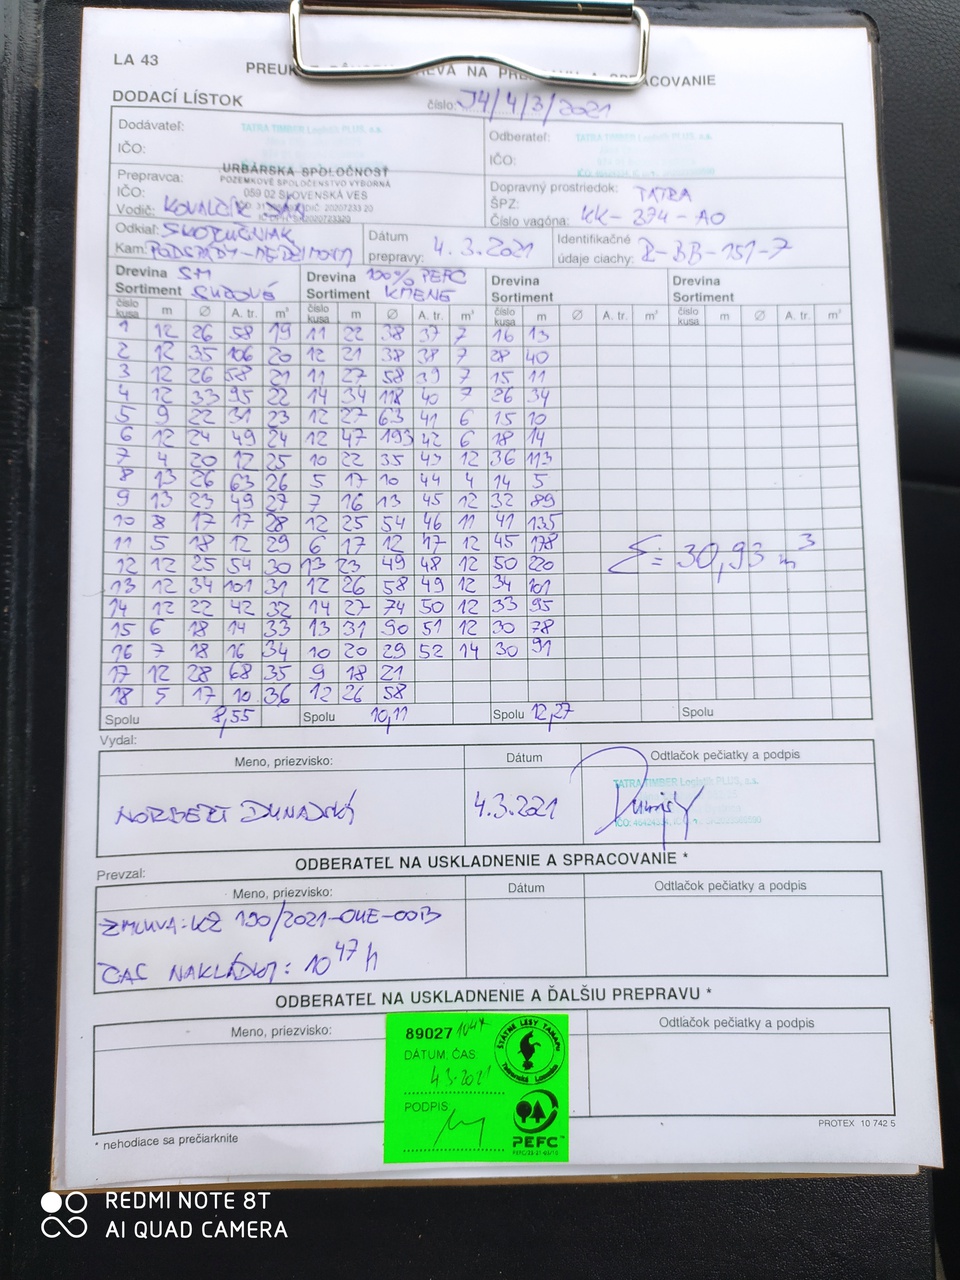 LA 43
DODACÍ LÍSTOK
číslo: J4/4/3/2021
Dodávateľ:
TATRA TIMBER Logistik PLUS, s.s.
IČO:
Odberateľ:
IČO:
Prepravca:
URBÁRSKA SPOLOČNOSŤ
POZEMKOVÉ SPOLOČENSTVO VÝBORNÁ
059 02 SLOVENSKÁ VES
IČO:
Vodič: KOVALČÍK JÁN
Dopravný prostriedok: TATRA
ŠPZ:
Číslo vagóna: KK-374-AO
Odkiaľ:
Kam:
Dátum prepravy: 4.3.2021
Identifikačné údaje ciachy: R-BB-151-7
Drevina SM
Sortiment SUROVÉ
Drevina 100% PEFC
Sortiment KMENE
Drevina
Sortiment
Drevina
Sortiment
číslo kusa m Ø A. tr. m³ číslo kusa m Ø A. tr. m³ číslo kusa m Ø A. tr. m³ číslo kusa m Ø A. tr. m³
1 12 26 58 19 11 22 38 37 7 16 13
2 12 35 106 20 12 21 38 38 7 28 40
3 12 26 58 21 11 27 58 39 7 15 11
4 12 33 95 22 14 34 118 40 7 26 34
5 9 22 31 23 12 27 63 41 6 15 10
6 12 24 49 24 12 47 193 42 6 18 14
7 4 20 12 25 10 22 35 43 12 36 113
8 13 26 63 26 5 17 10 44 4 14 5
9 13 23 49 27 7 16 13 45 12 32 89
10 8 17 17 28 12 25 54 46 11 41 135
11 5 18 12 29 6 17 12 47 12 45 178
12 12 25 54 30 13 23 49 48 12 50 220
13 12 34 101 31 12 26 58 49 12 34 101
14 12 22 42 32 14 27 74 50 12 33 95
15 6 18 14 33 13 31 90 51 12 30 78
16 7 18 16 34 10 20 29 52 14 30 91
17 12 28 68 35 9 18 21
18 5 17 10 36 12 26 58
Σ= 30,93 m³
Spolu 8,55 Spolu 10,11 Spolu 12,27 Spolu
Vydal:
Meno, priezvisko: Dátum Odtlačok pečiatky a podpis
NORBERT DUNAJSKÝ 4.3.2021
TATRA TIMBER Logistik PLUS, s.s.
ODBERATEĽ NA USKLADNENIE A SPRACOVANIE *
Prevzal:
Meno, priezvisko: Dátum Odtlačok pečiatky a podpis
ZMLUVA: KZ 190/2021-OHE-00B
ČAS NAKLÁDKY: 10 47 h
ODBERATEĽ NA USKLADNENIE A ĎALŠIU PREPRAVU *
Meno, priezvisko: Odtlačok pečiatky a podpis
89027 1047
DÁTUM, ČAS
4.3.2021
PODPIS
ŠTÁTNE LESY TANAPu
Tatranská Lomnica
PEFC
* nehodiace sa prečiarknite
PROTEX 10 742 5
REDMI NOTE 8T
AI QUAD CAMERA